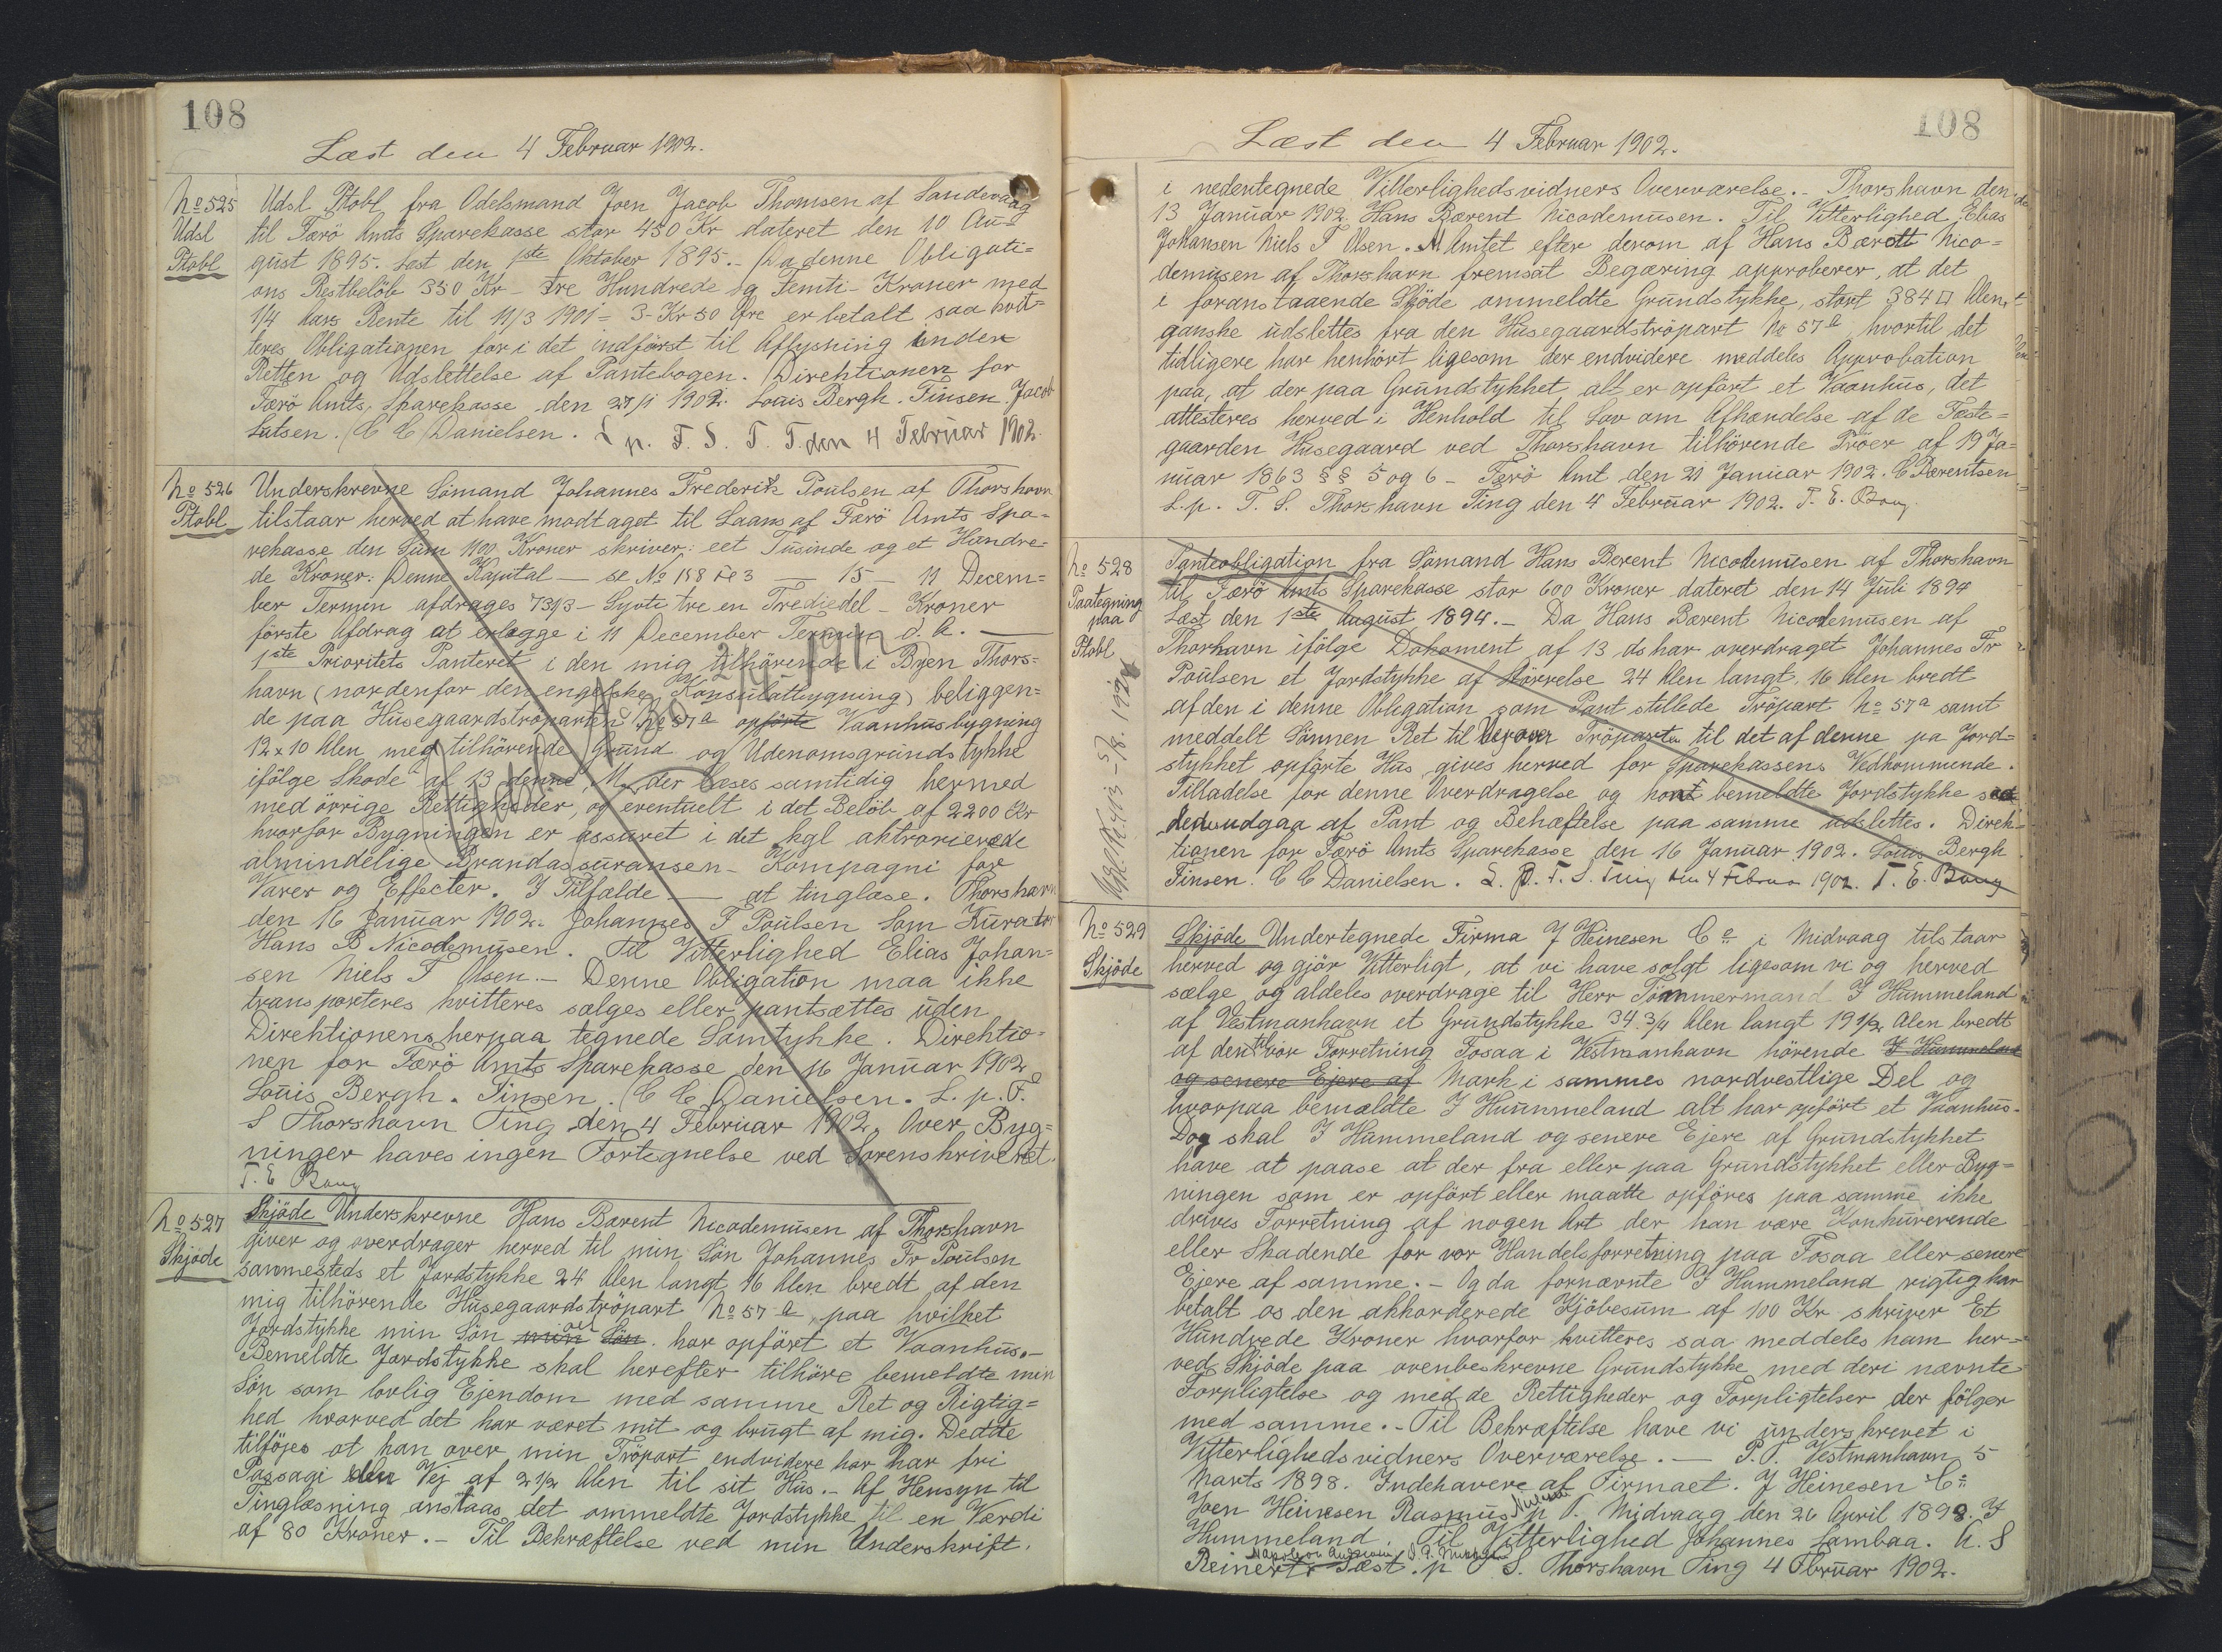 108
Læst den 4 Februar 1902.
No 525
Udsl
Ptobl
Udsl Ptobl fra Odelsmand Joen Jacob Thomsen af Sandevaag
til Færö Amts Sparekasse stor 450 Kr dateret den 10 Au-
gust 1895. Læst den 1ste Oktober 1895.- Da denne Obligati=
ons Restbelöb 350 Kr - Tre Hundrede og Femti - Kroner med
1/4 Aars Rente til 11/3 1901 = 3-Kr 50 Öre er betalt saa kvit-
teres Obligationen for i det indförst til Aflysning inden
Retten og Udslettelse af Pantebogen. Direktionen for
Færö Amts Sparekasse den 27/1 1902. Louis Bergh. Finsen. Jacob
Lutsen. C C Danielsen. L p. F. S. T. T. den 4 Februar 1902.
No 526
Ptobl
Underskrevne Sömand Johannes Frederik Poulsen af Thorshavn
tilstaar herved at have modtaget til Laans af Færö Amts Spa-
rekasse den Sum 1100 Kroner skriver: eet Tusinde og et Hundre-
de Kroner. Denne Kapital — se No 158 Fo 3 — 15 — 11 Decem=
ber Termin afdrages 73 1/3 - Syvti tre en Trediedel - Kroner
förste Afdrag at erlægge i 11 December Termin d. A. —
1ste Prioritets Panteret i den mig tilhörende i Byen Thors=
havn (nordenfor den engelske Konsulatbygning) beliggen=
de paa Husegaardströparten No 57a opförte Vaanhusbygning
12 x 10 Alen med tilhörende Grund og Udenomsgrundstykke
ifölge Skøde af 13 denne M. der læses samtidig hermed
med övrige Rettigheder, og eventuelt i det Belöb af 2200 Kr
hvorfor Bygningen er assuret i det kgl aktrorierede
almindelige Brandassuransen - Kompagni for
Varer og Effecter. I Tilfælde — at tinglæse. Thorshavn
den 16 Januar 1902. Johannes F Poulsen Som Kurator
Hans B Nicodemusen. Til Vitterlighed Elias Johan=
sen Niels F Olsen.- Denne Obligation maa ikke
transporteres kvitteres sælges eller pantsættes uden
Direktionens herpaa tegnede Samtykke. Direktio=
nen for Færö Amts Sparekasse den 16 Januar 1902
Louis Bergh. Finsen. C C Danielsen. L. p. F.
S Thorshavn Ting den 4 Februar 1902. Over Byg=
ninger haves ingen Fortegnelse ved Sorenskriveriet.
T. E Bang
No 527
Skjöde
Skjöde Underskrevne Hans Barent Nicodemusen af Thorshavn
giver og overdrager herved til min Sön Johannes Fr Poulsen
sammesteds et Jordstykke 24 Alen langt, 16 Alen bredt af den
mig tilhörende Husegaardströpart No 57 a, paa hvilket
Jordstykke min Sön min Sön har opfört et Vaanhus.-
Bemeldte Jordstykke skal herefter tilhöre bemeldte min
Sön som lovlig Ejendom med samme Ret og Rigtig=
hed hvorved det har været mit og brugt af mig. Dedte
tilföjes at han over min Tröpart endvidere har har fri
Passage Vej af 2 1/2 Alen til sit Hus.- Af Hensyn til
Tinglæsning anstaas det ommeldte Jordstykke til en Værdi
af 80 Kroner.- Til Bekræftelse ved min Underskrift.
108
Læst den 4 Februar 1902.
i nedentegnede Vitterlighedsvidners Overværelse.- Thorshavn den
13 Januar 1902 Hans Bærent Nicodemusen. Til Vitterlighed Elias
Johansen Niels F Olsen. Amtet efter derom af Hans Bærott Nico=
demusen af Thorshavn fremsat Begæring approberer, at det
i foranstaaende Skjöde ommeldte Grundstykke, stort 384 □ Alen,
ganske udslettes fra den Husegaardströpart No 57a, hvortil det
tidligere har henhört ligesom der endvidere meddeles Approbation
paa, at der paa Grundstykket alt er opfört et Vaanhus, det
attesteres herved i Henhold til Lov om Afhændelse af de Fæste=
gaarden Husegaard ved Thorshavn tilhörende Tröer af 19 Ja=
nuar 1863 §§ 5 og 6 - Færö Amt den 21 Januar 1902. C Bærentsen
L. p. F. S. Thorshavn Ting den 4 Februar 1902. T. E. Bang.
No 528
Paategning
paa
Ptobl
Panteobligation fra Sömand Hans Berent Nicodemusen af Thorshavn
til Færö Amts Sparekasse stor 600 Kroner dateret den 14 Juli 1894
Læst den 1ste August 1894.- Da Hans Bærent Nicodemusen af
Thorhavn ifölge Dokument af 13 ds har overdraget Johannes Fr
Poulsen et Jordstykke af Störrelse 24 Alen langt, 16 Alen bredt
af den i denne Obligation som Pant stillede Tröpart No 57a samt
meddelt Sönnen Ret til Vej over Tröparten til det af denne pa Jord=
stykket opförte Hus gives herved for Sparekassens Vedkommende
Tilladelse for denne Overdragelse og kont bemeldte Jordstykke
udgaa af Pant og Behæftelse paa samme udslettes. Direk=
tionen for Færö Amts Sparekasse den 16 Januar 1902. Louis Bergh
Finsen. C C Danielsen. L. p. F. S. Ting den 4 Februar 1902. T. E. Bang
No 529
Skjöde
Skjöde Undertegnede Firma J Heinesen Co i Midvaag tilstaar
herved og gjör Vitterligt, at vi have solgt ligesom vi og herved
sælge og aldeles overdrage til Herr Tömmermand J Hummeland
af Vestmanhavn et Grundstykke 34 3/4 Alen langt 19 1/2 Alen bredt
af den til vor Forretning Fosaa i Vestmanhavn hörende J Hummeland
og senere Ejere af Mark i sammes nordvestlige Del og
hvorpaa bemældte J Hummeland alt har opfört et Vaanhus.
Dog skal J Hammeland og senere Ejere af Grundstykket
have at paase at der fra eller paa Grundstykket eller Byg=
ningen som er opfört eller maatte opföres paa samme ikke
drives Forretning af nogen Art der kan være Konkurerende
eller Skadende for vor Handelsforretning paa Fosaa eller senere
Ejere af samme.- Og da fornævnte J Hummeland rigtig har
betalt os den akkorderede Kjöbesum af 100 Kr skriver Et
Hundrede Kroner hvorfor kvitteres saa meddeles ham her=
ved Skjöde paa ovenbeskrevne Grundstykke med deri nævnte
Forpligtelse og med de Rettigheder og Forpligtelser der fölger
med samme.- Til Bekræftelse have vi underskrevet i
Vitterlighedsvidners Overværelse.- P. T. Vestmanhavn 5
Marts 1898. Indehavere af Firmaet. J Heinesen Co
Joen Heinesen Rasmus Nielsen p T. Midvaag den 26 April 1898. J
Hummeland. Til Vitterlighed Johannes Lambaa. N. S
Reinert Læst. p F S. Thorshavn Ting 4 Fbruar 1902.